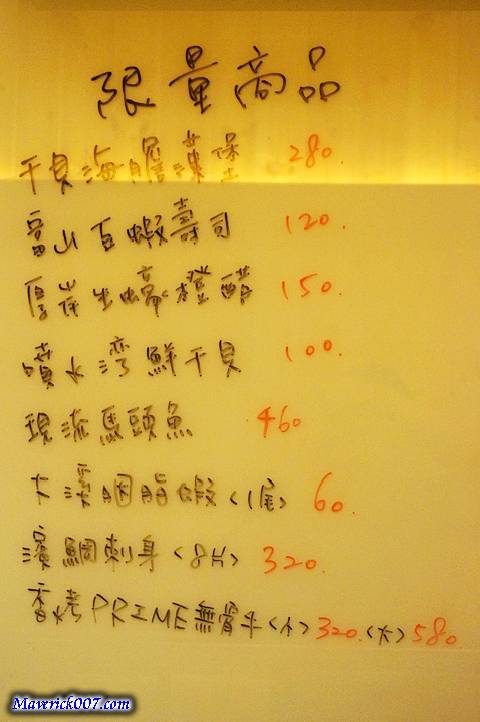 限量商品
干貝海膽漢堡 280.
富山白蝦壽司 120.
厚岸生蠔橙醋 150.
噴水灣鮮干貝 100.
現流馬頭魚 460
大溪胭脂蝦(1尾) 60.
濱鯛刺身(8片) 320.
香烤PRIME無骨牛(小)320.(大)580.
Maverick007.com